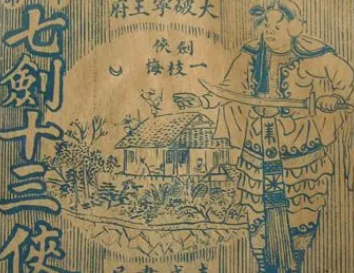 大破寧王府
劍俠
一枝梅
七劍十三俠